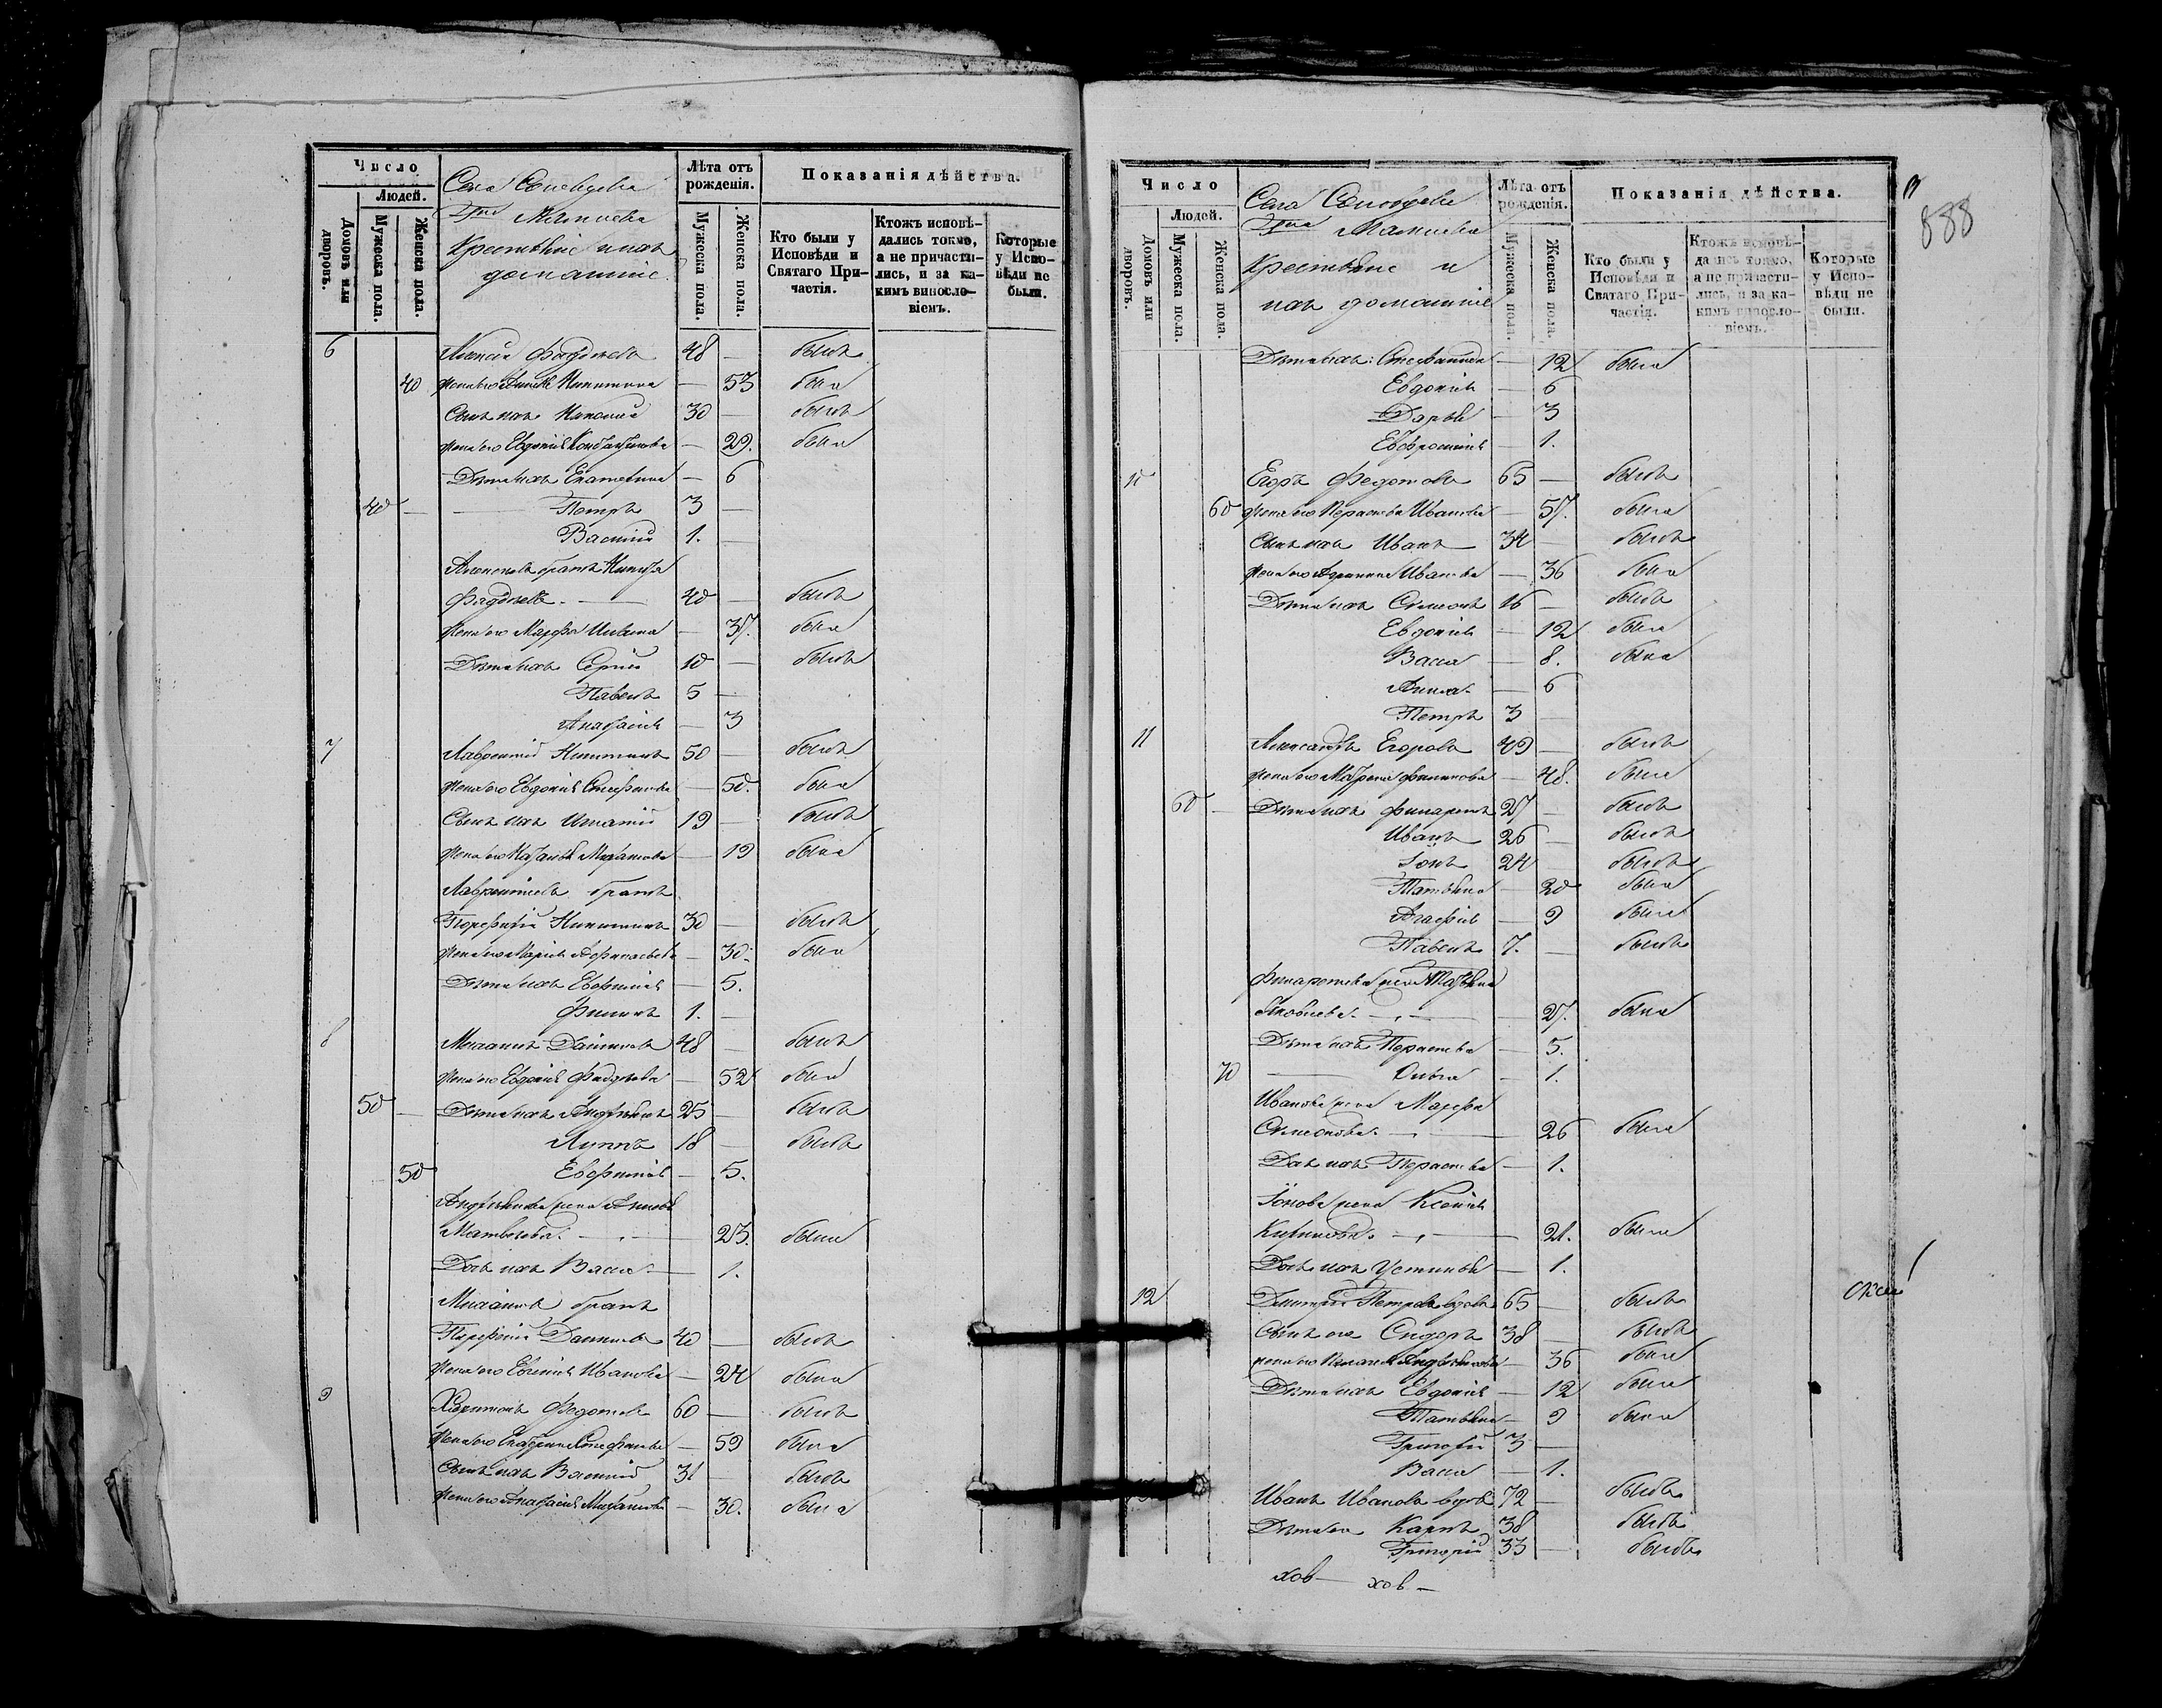 Число
Людей.
Домовъ или дворовъ.
Мужеска пола.
Женска пола.
Села
Гдна
Крестьяне и ихъ
домашніе.
Лѣта отъ рожденія.
Мужеска пола.
Женска пола.
Показанія дѣйства.
Кто были у Исповѣди и Святаго Причастія.
Ктожъ исповѣдались токмо, а не причастились, и за какимъ винословіемъ.
Которые у Исповѣди не были.
6 Алексѣй Фадѣевъ 48 — былъ
40 жена его Никитина — 53 была
Сынъ ихъ Николай 30 — былъ
жена его Евдокія Константинова — 29. была
Дѣти ихъ Екатерина — 6
40 — — Петръ 3 —
Василій 1. —
братъ Никита
Фадѣевъ. — 40 — былъ
жена его Марфа — 37. была
Дѣти ихъ Сергій 10 — былъ
Павелъ 5 —
Анастасія — 3
7 Лаврентій Никитинъ 50 — былъ
жена его Евдокія Стефанова — 50. была
Сынъ ихъ Игнатій 19 — былъ
жена его Наталья — 19 была
Лаврентіевъ братъ
Порфирій Никитинъ 30 — былъ
жена его Марія Афанасьева — 30. была
Дѣти ихъ Евфимія — 5.
Филипъ 1. —
8 48 — былъ
жена его Евдокія Фадѣева — 52 была
50 — Дѣти ихъ 25 — былъ
18 — былъ
50 Евфимія — 5.
жена
Матвѣева. — 23. была
Дочь ихъ Васса — 1.
братъ
40 — былъ
жена его Евгенія Иванова — 24 была
9 Харитонъ Федотовъ 60 — былъ
жена его Стефанова — 59 была
Сынъ ихъ Василій 31 — былъ
жена его Анастасія — 30. была
888
Число
Людей.
Домовъ или дворовъ.
Мужеска пола.
Женска пола.
Села
Гдна
Крестьяне и
ихъ домашніе
Лѣта отъ рожденія.
Мужеска пола.
Женска пола.
Показанія дѣйства.
Кто были у Исповѣди и Святаго Причастія.
Ктожъ исповѣдались токмо, а не причастились, и за какимъ винословіемъ.
Которые у Исповѣди не были.
Дѣти ихъ: Стефанида — 12 была
Евдокія — 6
Дарья — 3
Евфросинія — 1.
10 Егоръ Федотовъ 65 — былъ
60 жена его Параскева Иванова — 57. была
Сынъ ихъ Иванъ 34 — былъ
жена его Иванова — 36 была
Дѣти ихъ Симеонъ 16 — былъ
Евдокія — 12 была
Васса — 8. была
Анна — 6
Петръ 3 —
11 Александръ Егоровъ 49 — былъ
жена его Матрена Филипова — 48. была
60 — Дѣти ихъ Филаретъ 27 — былъ
Иванъ 26 — былъ
Іонъ 24 былъ
Татьяна — 20 была
Агафія — 9 была
Павелъ 7. — былъ
Филаретова жена Татьяна
Яковлева. — 27. была
Дѣти ихъ Параскева — 5.
70 — Ольга — 1.
Иванова жена Марфа
Симеонова. — 26 была
Дочь ихъ Параскева — 1.
Іонова жена Ксенія
Кирилова. — 21. была
Дочь ихъ Устинья — 1.
12 Дмитрій Петровъ вдовъ 65 — былъ
Сынъ его Сидоръ 38 — былъ
жена его — 36 была
Дѣти ихъ Евдокія — 12 была
Татьяна — 9 была
Григорій 3 —
Васса — 1.
Иванъ Ивановъ вдовъ 72 — былъ
Дѣти его Карпъ 38 — былъ
Григорій 33 — былъ